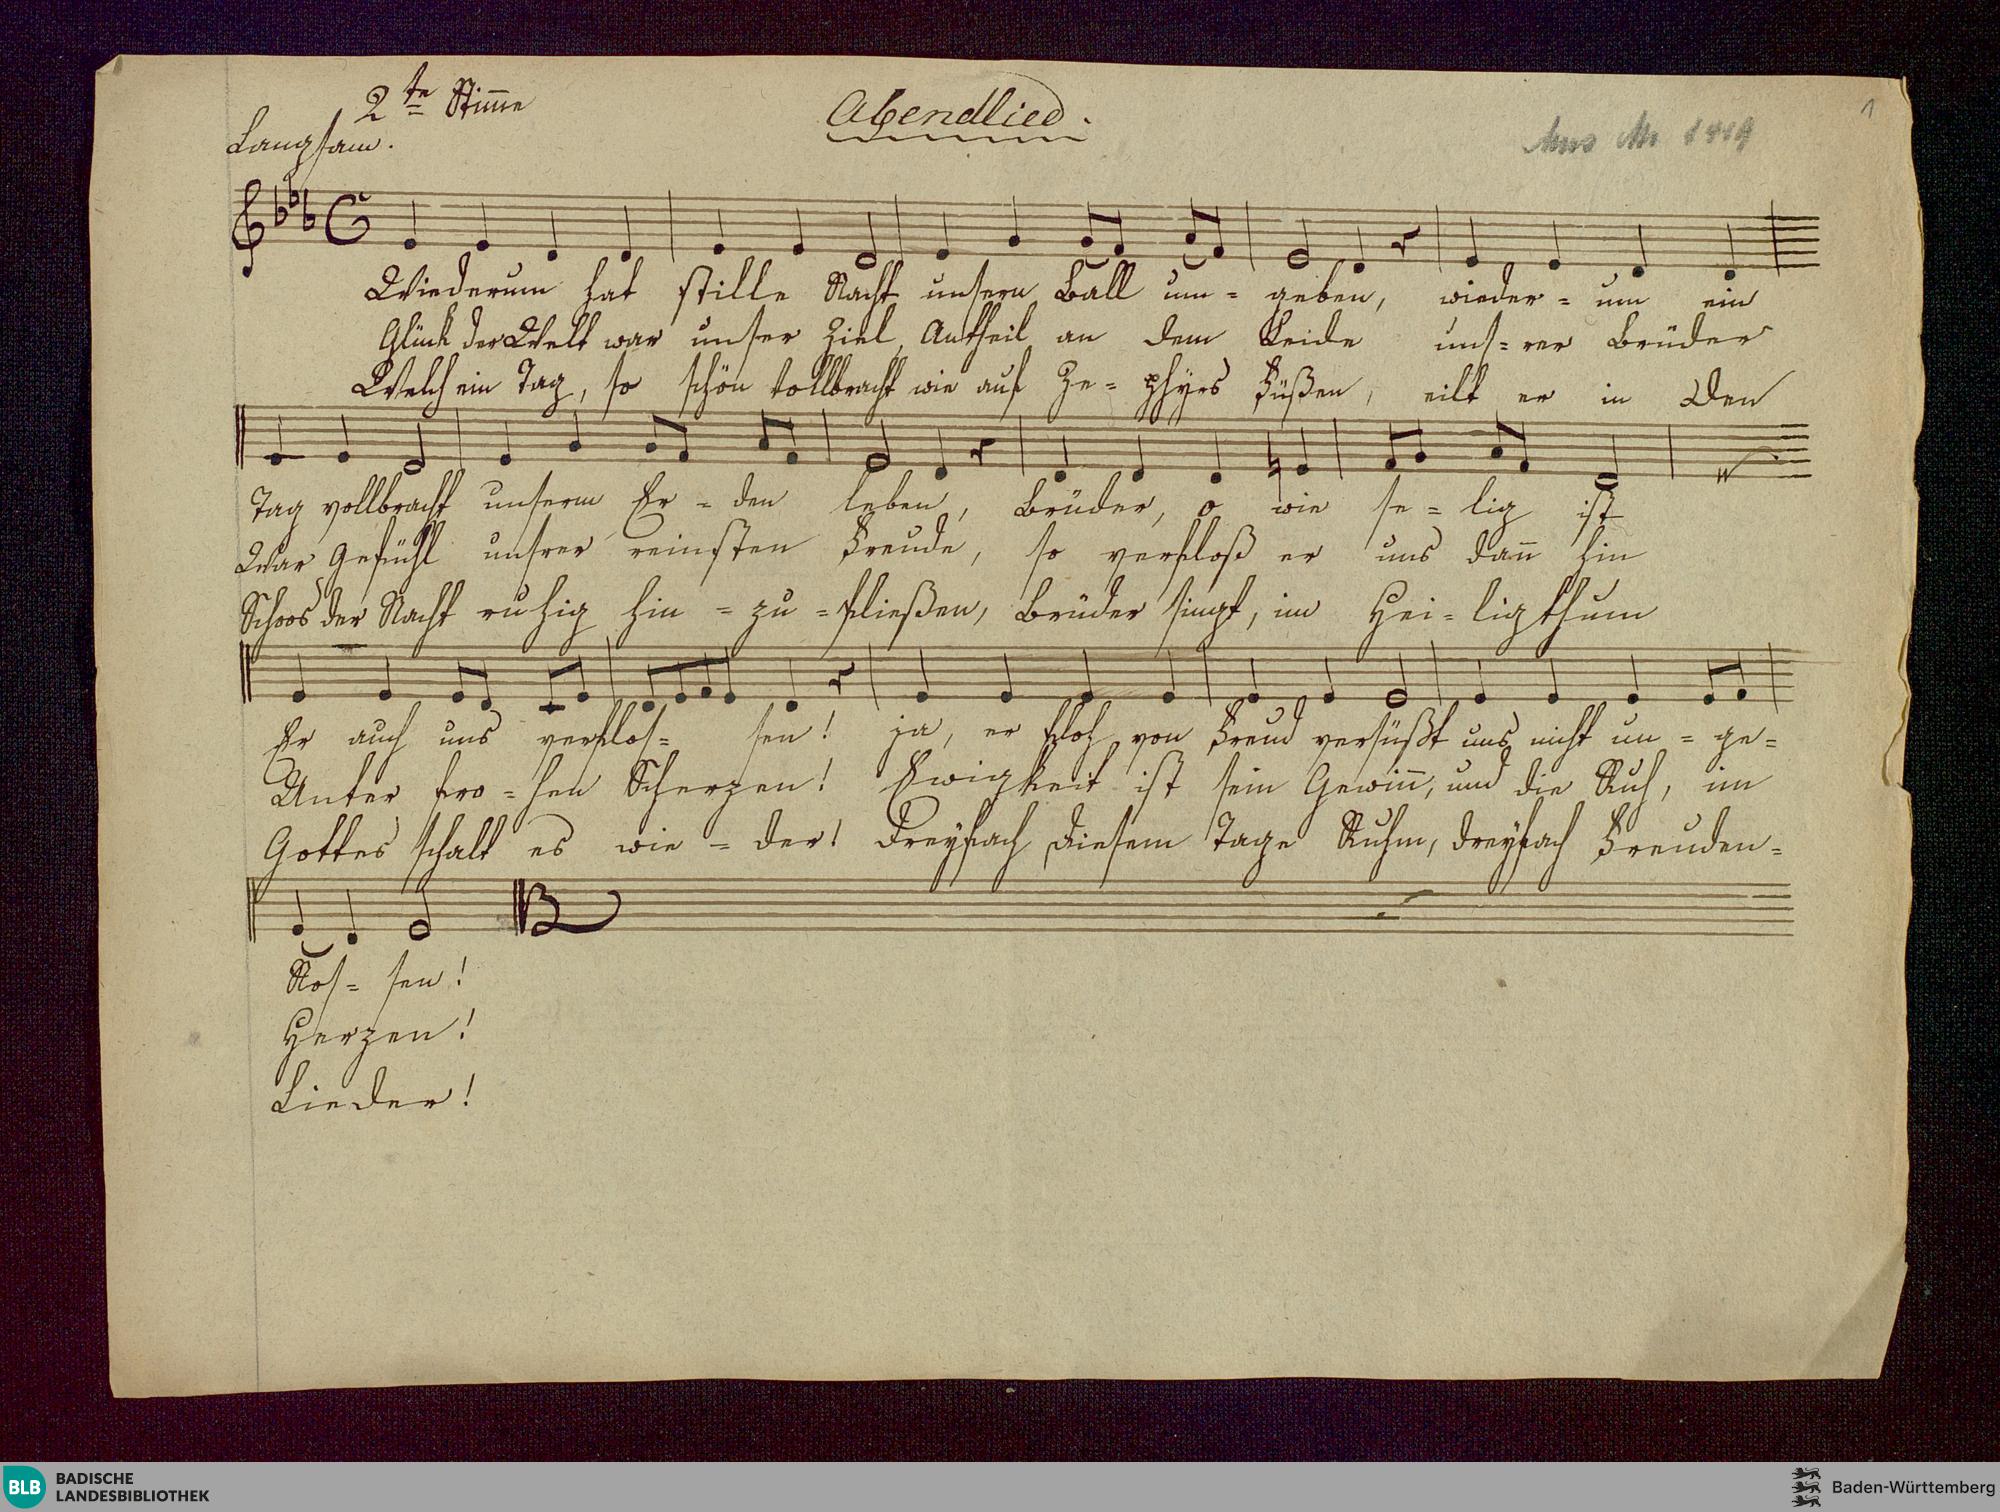 2te Stimme
Abendlied.
1
Langsam.
Mus Ms 1419
Wiederum hat stille Nacht unsern Ball um= geben, wieder=um ein
Glück der Welt war unser Ziel, Antheil an dem Leide uns=rer Brüder
Welch ein Tag, so schön vollbracht wie auf Ze=phyrs Füßen, eilt er in den
Tag vollbracht unserm Er=den leben, Brüder, o wie se=lig ist
War Gefühl unsrer reinsten Freude, so verfloß er uns dann hin
Schoos der Nacht ruhig hin=zu=fließen, Brüder singt, im Hei=ligthum
Er auch uns verflos=sen! ja, er floh von Freud versüßt uns nicht un=ge=
Unter fro=hen Scherzen! Ewigkeit ist sein Gewinn, und die Ruh, im
Gottes schalt es wie=der! Dreyfach diesem Tage Ruhm, dreyfach Freuden=
Nos=sen!
Herzen!
Lieder!
BLB BADISCHE
LANDESBIBLIOTHEK
Baden-Württemberg